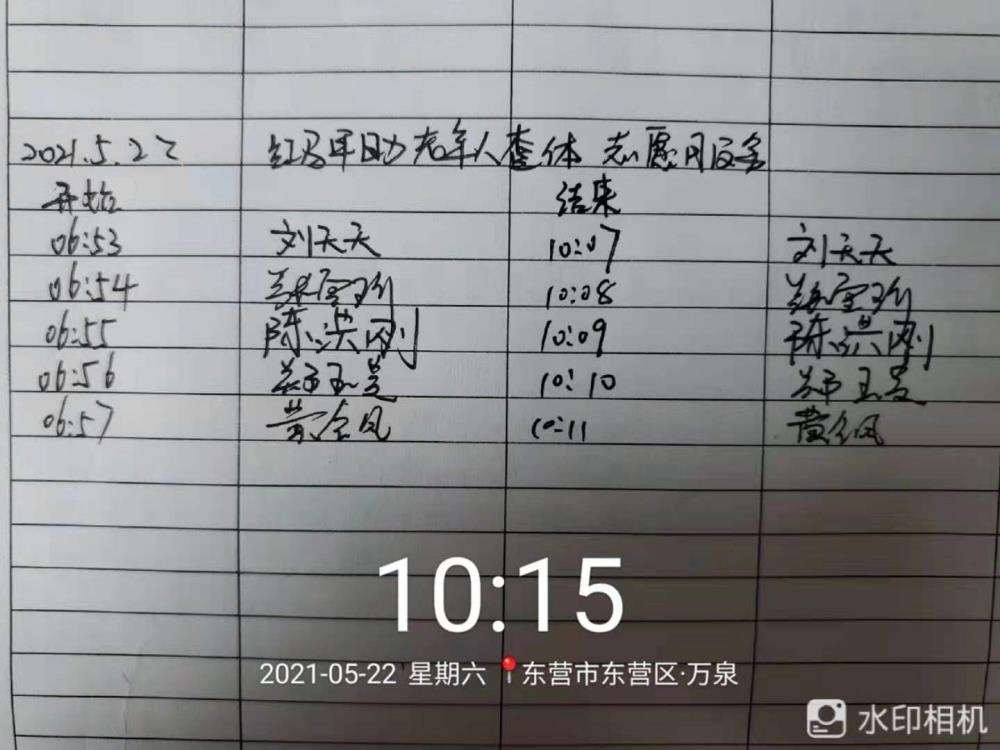 2021.5.22 红马甲助老年人查体 志愿服务
开始 结束
06:53 刘天天 10:07 刘天天
06:54 10:08
06:55 陈洪刚 10:09 陈洪刚
06:56 郑玉景 10:10 郑玉景
06:57 黄金凤 10:11 黄金凤
10:15
2021-05-22 星期六 东营市东营区·万泉
水印相机